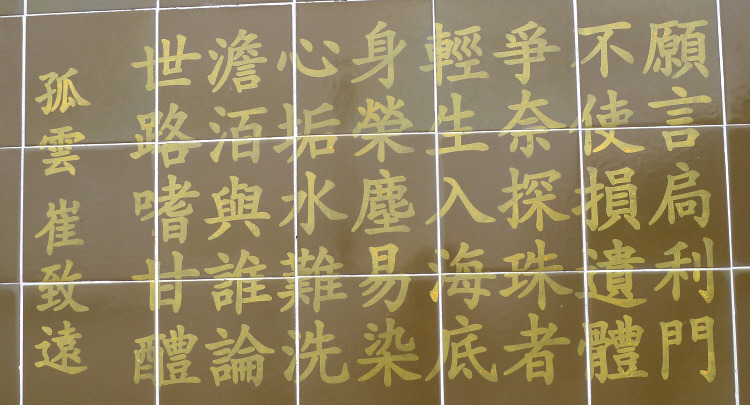 願言扃利門
不使損遺體
爭奈探珠者
輕生入海底
身榮塵易染
心垢水難洗
澹泊與誰論
世路嗜甘醴
孤雲 崔致遠